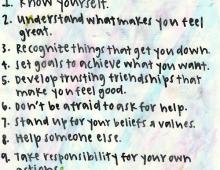 1. Know yourself.
2. Understand what makes you feel
great.
3. Recognize things that get you down.
4. Set goals to achieve what you want.
5. Develop trusting friendships that
make you feel good.
6. Don't be afraid to ask for help.
7. Stand up for your beliefs & values.
8. Help someone else.
9. Take responsibility for your own
actions.